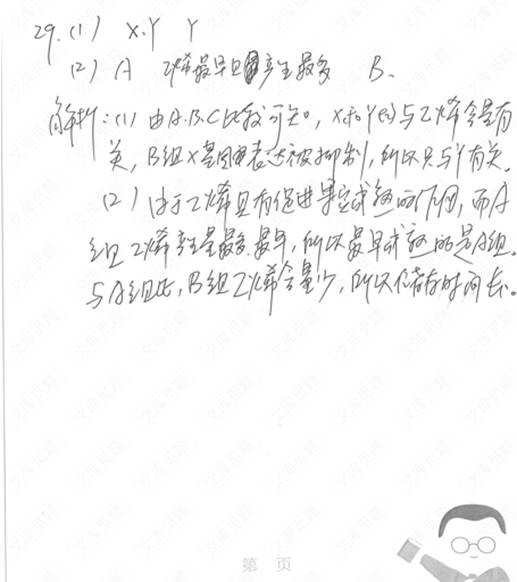 29.(1) X.Y Y
(2) A 乙烯最早且产生最多 B.
解析:(1) 由A.B.C比较可知, X和Y均与乙烯含量有
关, B组X基因表达被抑制, 所以只与Y有关.
(2) 由于乙烯具有促进果实成熟的作用, 而A
组乙烯产量最多.最早, 所以最早成熟的是A组.
与A组比, B组乙烯含量少, 所以储存时间长.
第 页